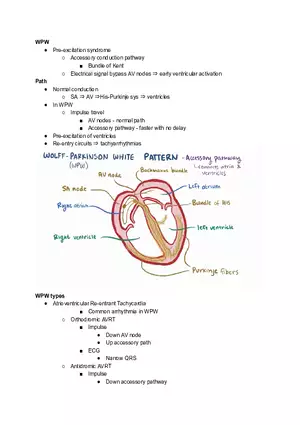 WPW
● Pre-excitation syndrome
○ Accessory conduction pathway
■ Bundle of Kent
○ Electrical signal bypass AV nodes ⇒ early ventricular activation
Path
● Normal conduction
○ SA ⇒ AV ⇒His-Purkinje sys ⇒ ventricles
● In WPW
○ Impulse travel
■ AV nodes - normal path
■ Accessory pathway - faster with no delay
● Pre-excitation of ventricles
● Re-entry circuits ⇒ tachyarrhythmias
WOLFF-PARKINSON WHITE PATTERN - Accessory pathway
(WPW)
connects atria &
ventricles
Bachmanns bundle
AV node
Left atrium
SA node
Bundle of HIS
Right atrium
left ventricle
Right ventricle
Purkinje fibers
WPW types
● Atrioventricular Re-entrant Tachycardia
■ Common arrhythmia in WPW
○ Orthodromic AVRT
■ Impulse
● Down AV node
● Up accessory path
■ ECG
● Narrow QRS
○ Antidromic AVRT
■ Impulse
● Down accessory pathway